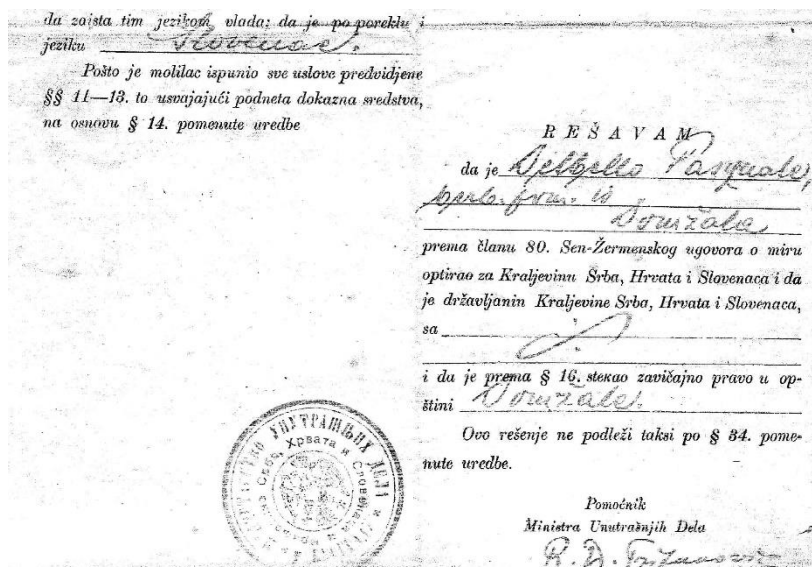 da zaista tim jezikom vlada; da je po poreklu i
jeziku Slovenac.
Pošto je molilac ispunio sve uslove predvidjene
§§ 11—13. to usvajajući podneta dokazna sredstva,
na osnovu § 14. pomenute uredbe
REŠAVAM
da je Pasquale,
Domžala
prema članu 80. Sen-Žermenskog ugovora o miru
optirao za Kraljevinu Srba, Hrvata i Slovenaca i da
je državljanin Kraljevine Srba, Hrvata i Slovenaca,
sa
i da je prema § 16. stekao zavičajno pravo u op-
štini Domžale.
Ovo rešenje ne podleži taksi po § 34. pome-
nute uredbe.
УНУТРАШЊИХ ДЕЛА
Срба, Хрвата и Словенаца
Pomoćnik
Ministra Unutrašnjih Dela
R. D.